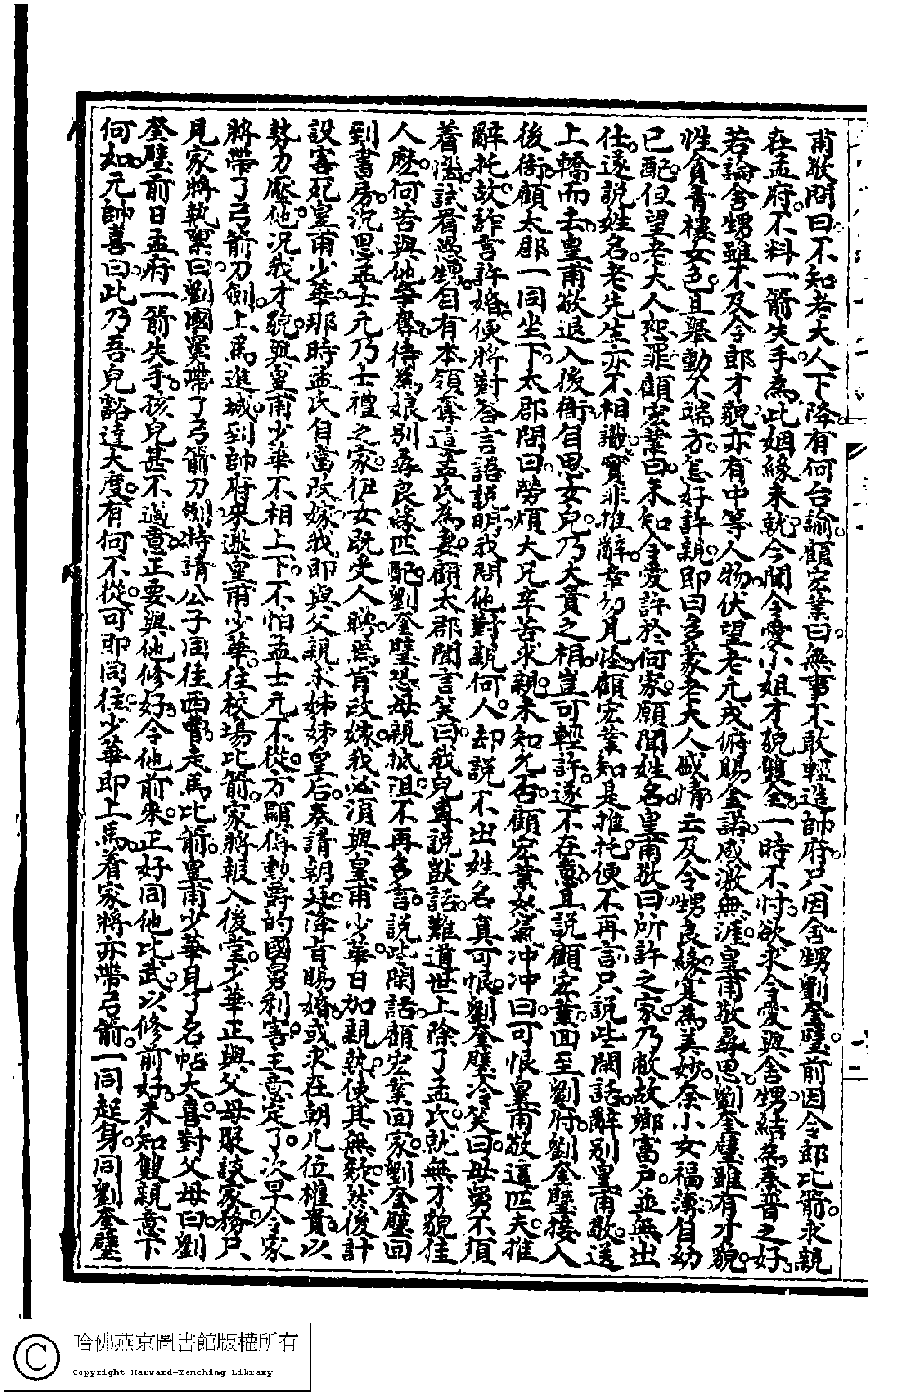 甫敬問曰不知老大人下降有何台諭顧宏業曰無事不敢輕造帥府只因舍甥劉奎璧前因令郎比箭求親
在孟府不料一箭失手為此姻緣未就今聞令愛小姐才貌雙全一時不忖欲求令愛與舍甥結為秦晉之好
若論舍甥雖不及令郎才貌亦有中等人物伏望老元戎俯賜金諾感激無涯皇甫敬尋思劉奎璧雖有才貌
性貪青樓女色且舉動不端方怎好許親即曰多蒙老大人盛情云及令甥良緣寔為美妙奈小女福薄自幼
已配但望老大人恕罪顧宏業曰未知令愛許於何家願聞姓名皇甫敬曰所許之家乃敝故鄉富戶並無出
仕遂說姓名老先生亦不相識實非推辭幸勿見怪顧宏業知是推托便不再言只說些閑話辭別皇甫敬送
上轎而去皇甫敬退入後衙自思女兒乃大貴之相豈可輕許遂不在意且說顧宏業回至劉府劉奎璧接入
後衙顧太郡一同坐下太郡問曰勞煩大兄辛苦求親未知允否顧宏業怒氣冲冲曰可恨皇甫敬這匹夫推
辭托故詐言許婚便將對答言語說明我問他對親何人却說不出姓名真可恨劉奎璧冷笑曰母舅不須
着惱試看愚甥自有本領奪這孟氏為妻顧太郡聞言笑曰我兒專說獃話難道世上除了孟氏就無才貌佳
人麼何苦與他爭奪待為娘別尋良緣匹配劉奎璧恐母親抵阻不再多言說些閑話顧宏業回家劉奎璧回
到書房沉思孟士元乃士禮之家伊女既受人聘焉肯改嫁我必須與皇甫少華日加親熱使其無疑然後計
設害死皇甫少華那時孟氏自當改嫁我即與父親未姊姊皇后奏請朝廷降旨賜婚或求在朝几位權貴以
勢力壓他况我才貌與皇甫少華不相上下不怕孟士元不從方顯得勳爵的國舅利害主意定了次早令家
將帶了弓箭刀劍上馬進城到帥府來邀皇甫少華往校場比箭家將報入後堂少華正與父母敘談家務只
見家將執禀曰劉國舅帶了弓箭刀劍特請公子同往西曹走馬比箭皇甫少華見了名帖大喜對父母曰劉
奎璧前日孟府一箭失手孩兒甚不過意正要與他修好今他前來正好同他比武以修前好未知雙親意下
何如元帥喜曰此乃吾兒豁達大度有何不從可即同往少華即上馬着家將亦帶弓箭一同起身同劉奎璧
哈佛燕京圖書館版權所有
Copyright Harvard-Yenching Library